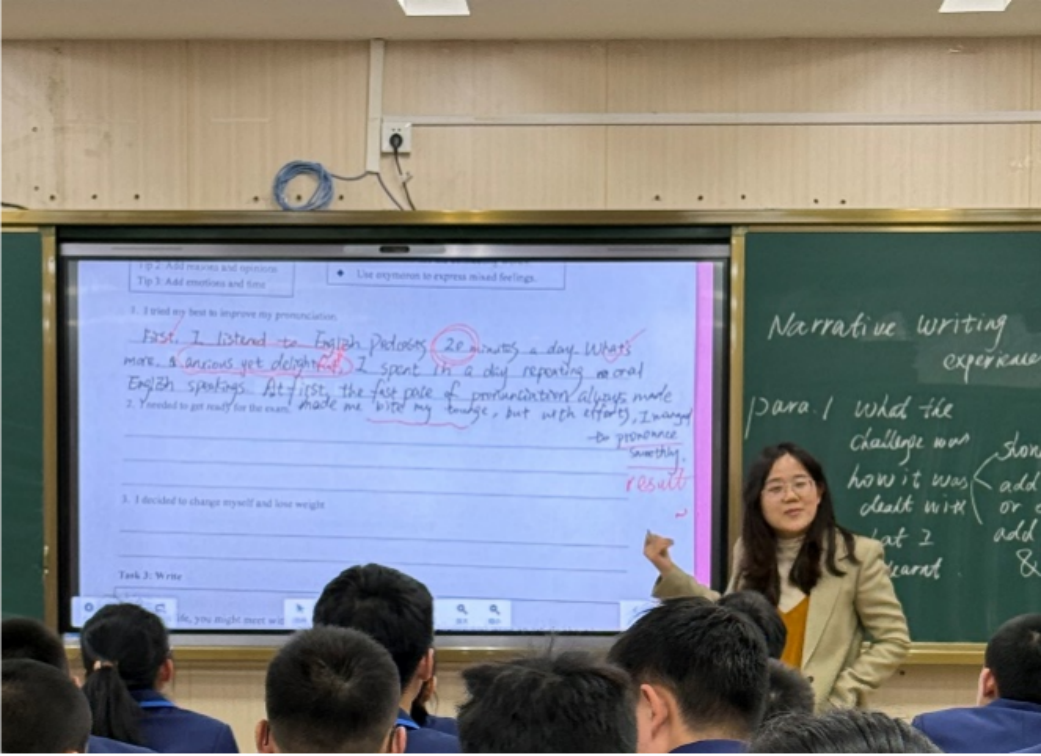 Tip 2: Add reasons and opinions
Tip 3: Add emotions and time
◆ Use oxymoron to express mixed feelings.
1. I tried my best to improve my pronunciation.
First, I listened to English Podcasts 20 minutes a day. What's
more, anxious yet delightful, I spent in a day repeating oral
English speakings. At first, the fast pace of pronunciation always made
2. I needed to get ready for the exam.
made me bite my tounge, but with efforts, I managed
to pronounce
smoothly.
result
3. I decided to change myself and lose weight
Task 3: Write
life, you might meet
Narrative writing
experience
para.1 what the
challenge was
how it was
dealt with
at I
learnt
show
add
or
add
&